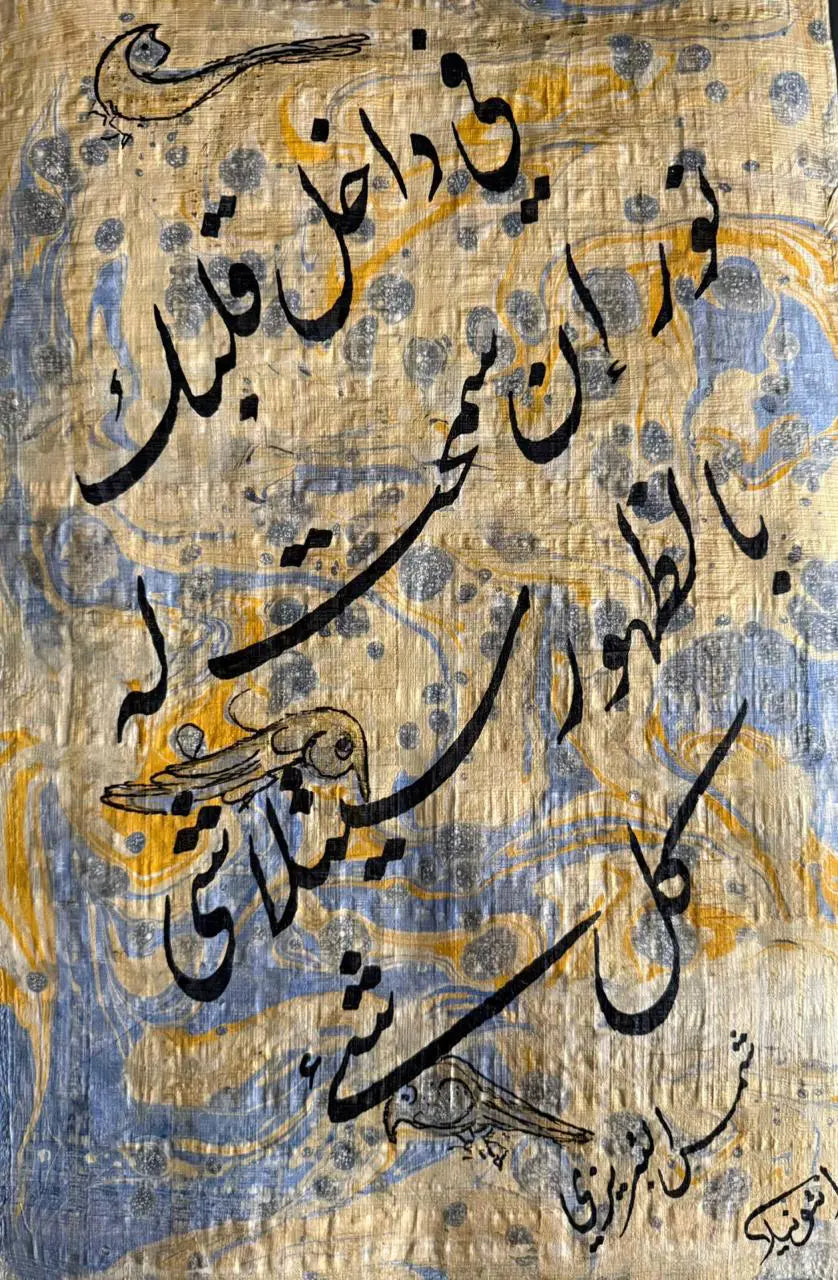 في داخل قلبك
نور إن سمحت له
بالظهور سيتلاشى
كل شيء
شمس التبريزي